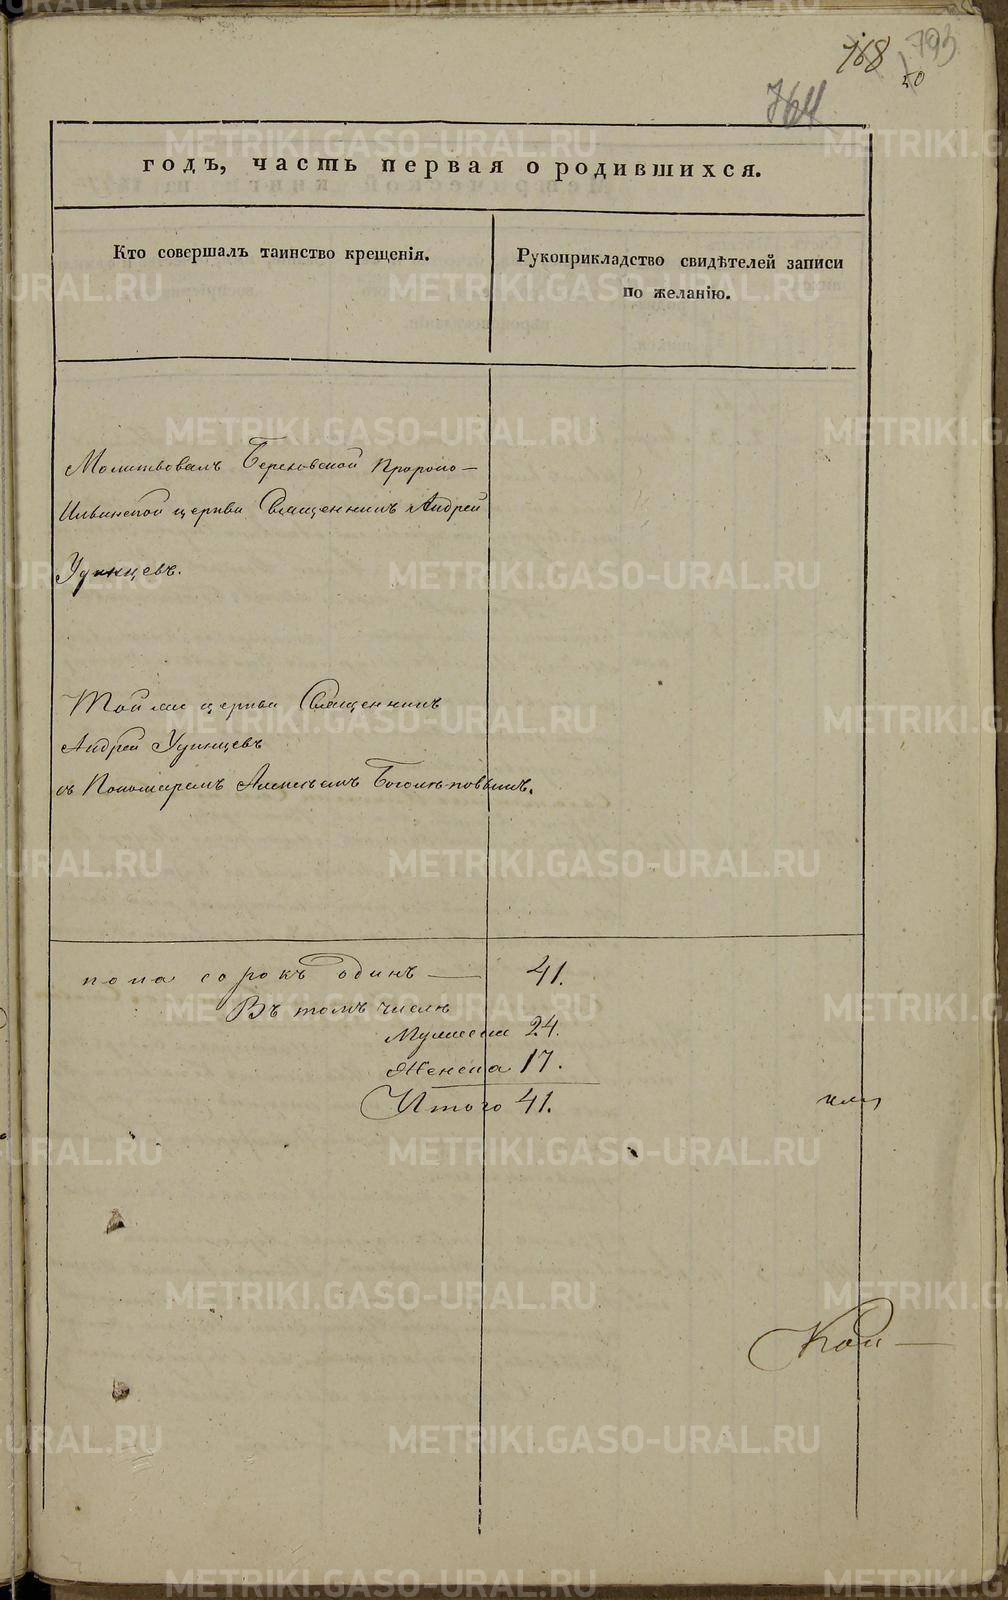 168
793
20
764
годъ, часть первая о родившихся.
Кто совершалъ таинство крещенія.
Рукоприкладство свидѣтелей записи
по желанію.
Молитвовалъ Березовской Пророко-
Ильинской церкви Священникъ Андрей
Удинцевъ.
Той же церкви Священникъ
Андрей Удинцевъ
съ Пономаремъ Алексѣемъ Боголѣповымъ.
пола сорокъ одинъ — 41.
Въ томъ числѣ
Мужеска 24.
Женска 17.
Итого 41.
METRIKI.GASO-URAL.RU